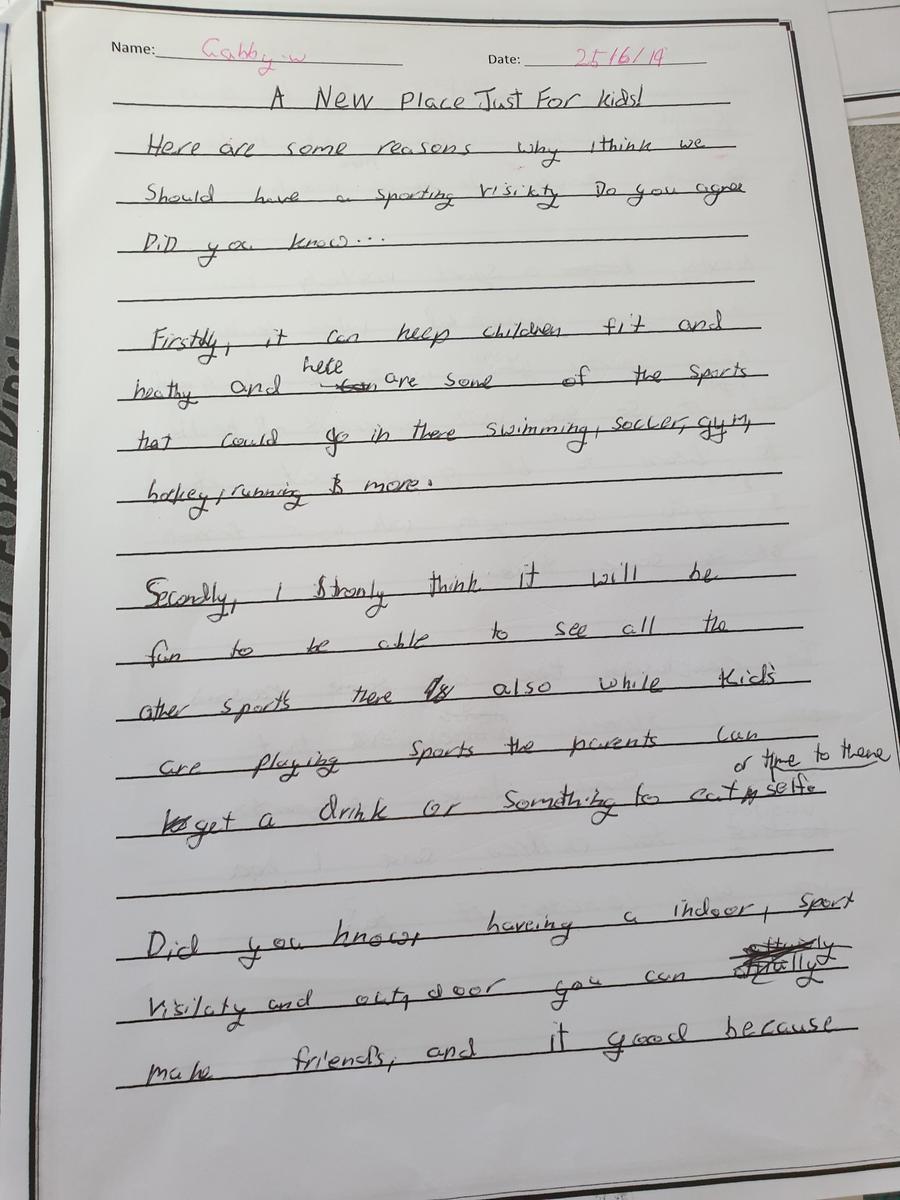 Name: Gabby.w Date: 25/6/19
A New Place Just For kids!
Here are some reasons why I think we
Should have a sporting visikty Do you agree
DiD you know...
Firstly, it can keep children fit and
heathy and here are some of the sports
that could go in there swimming, soccer, gym,
hockey, running & more.
Secondly, I Stronly think it will be
fun to be able to see all the
other sports there is also while kid's
are playing sports the parents can
get a drink or Something to eat or time to there selfe
Did you know haveing a indoor, sport
visilaty and out door you can
make friends, and it good because